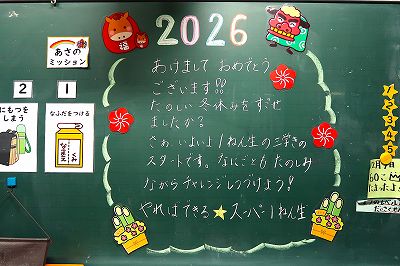 2026
あさの
ミッション
2
1
にもつを
しまう
なふだをつける
福
あけまして おめでとう
ございます!!
たのしい 冬休みを すごせ
ましたか?
さあ、いよいよ 1ねん生の 三学きの
スタートです。なにごとも たのしみ
ながら チャレンジしつづけよう!
やればできる ★ スーパー1ねん生
60こ